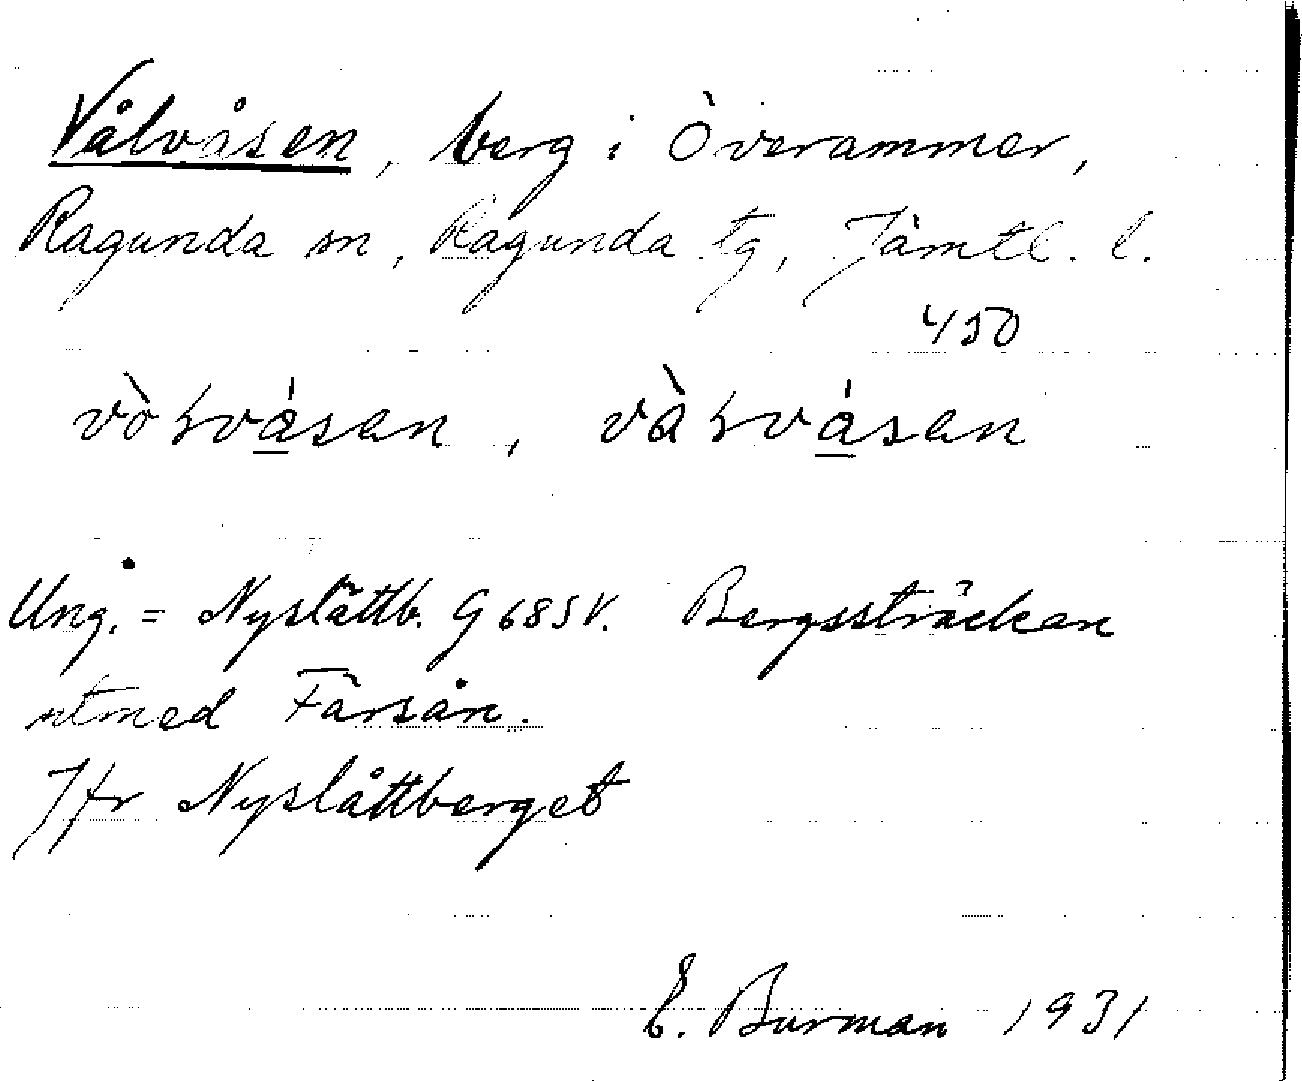 Vålvåsen, berg i Överammer,
Ragunda sn, Ragunda tg, Jämtl. l.
450
vòɽvásan, vàɽvásan
Ung. = Nyslåttb. G 68 SV. Bergssträckan
utmed Färsån.
Jfr Nyslåttberget
E. Burman 1931